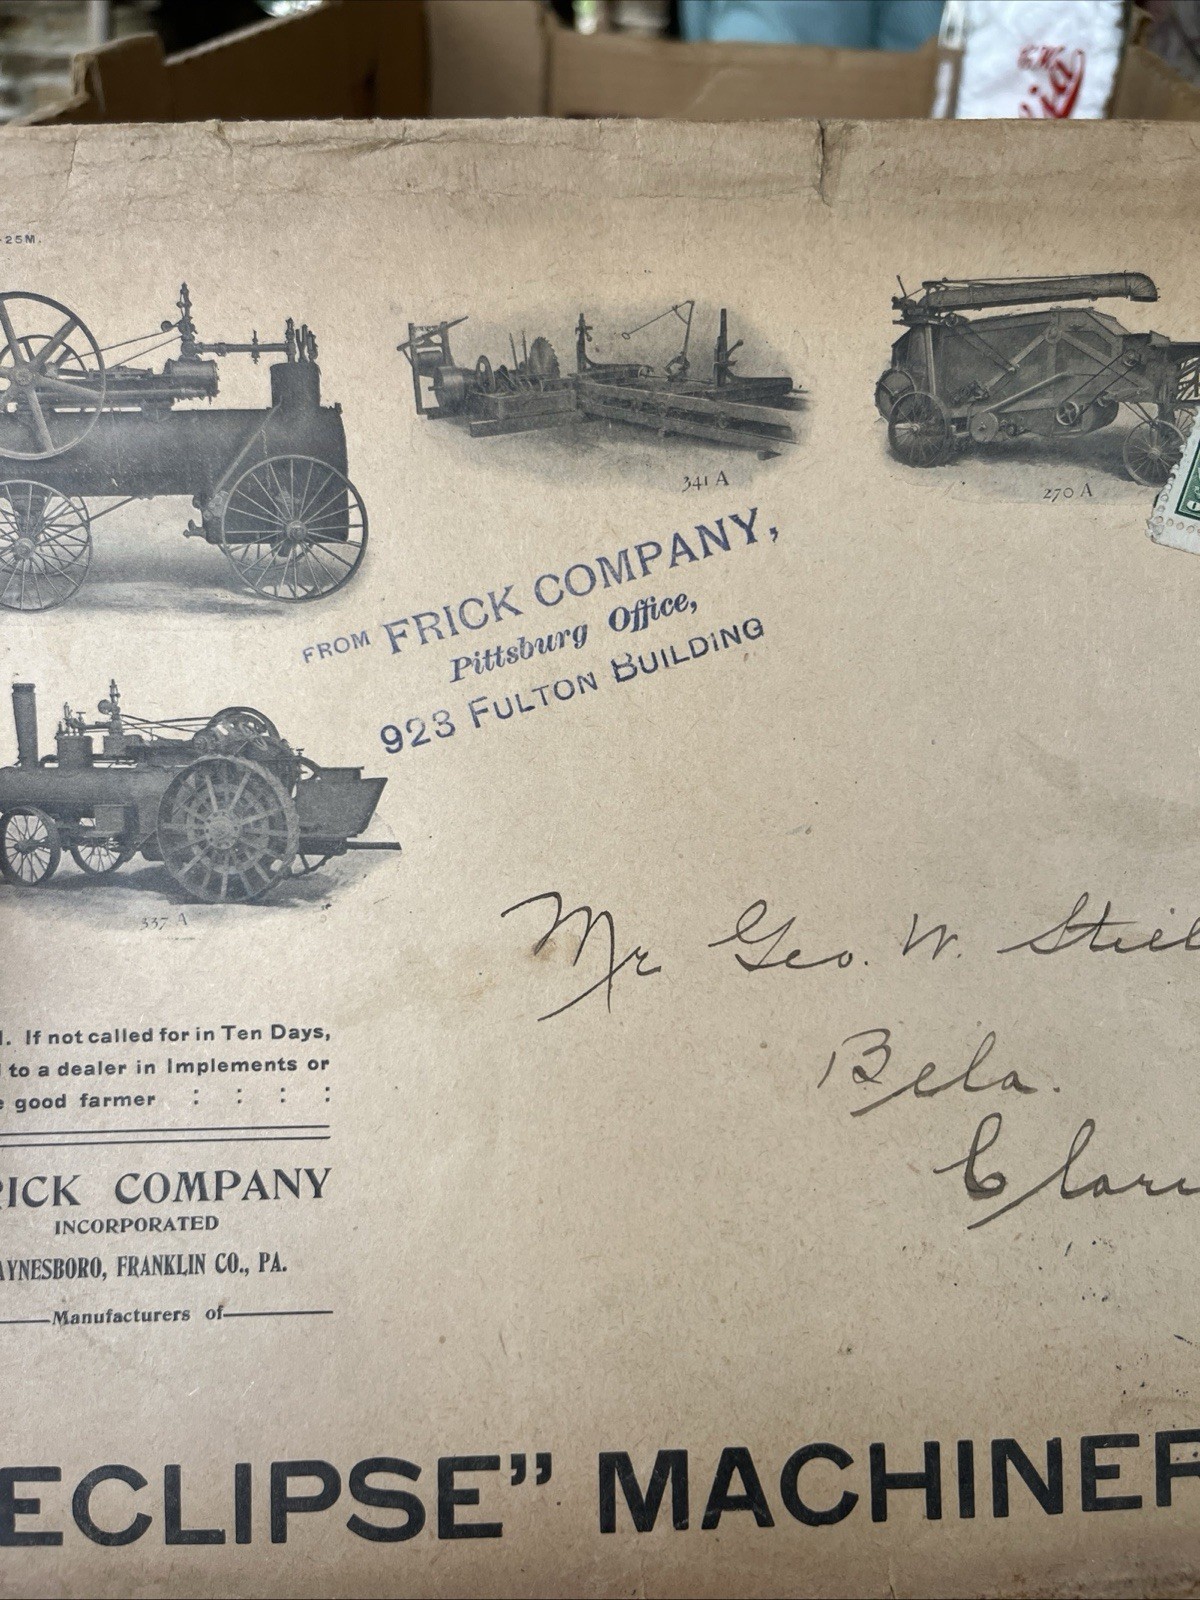 -25M.
341 A
270 A
FROM FRICK COMPANY,
Pittsburg Office,
923 FULTON BUILDING
337 A
Mr Geo. W. Steel
Bela.
Clari
If not called for in Ten Days,
to a dealer in Implements or
good farmer : : : :
RICK COMPANY
INCORPORATED
AYNESBORO, FRANKLIN CO., PA.
Manufacturers of
ECLIPSE" MACHINER